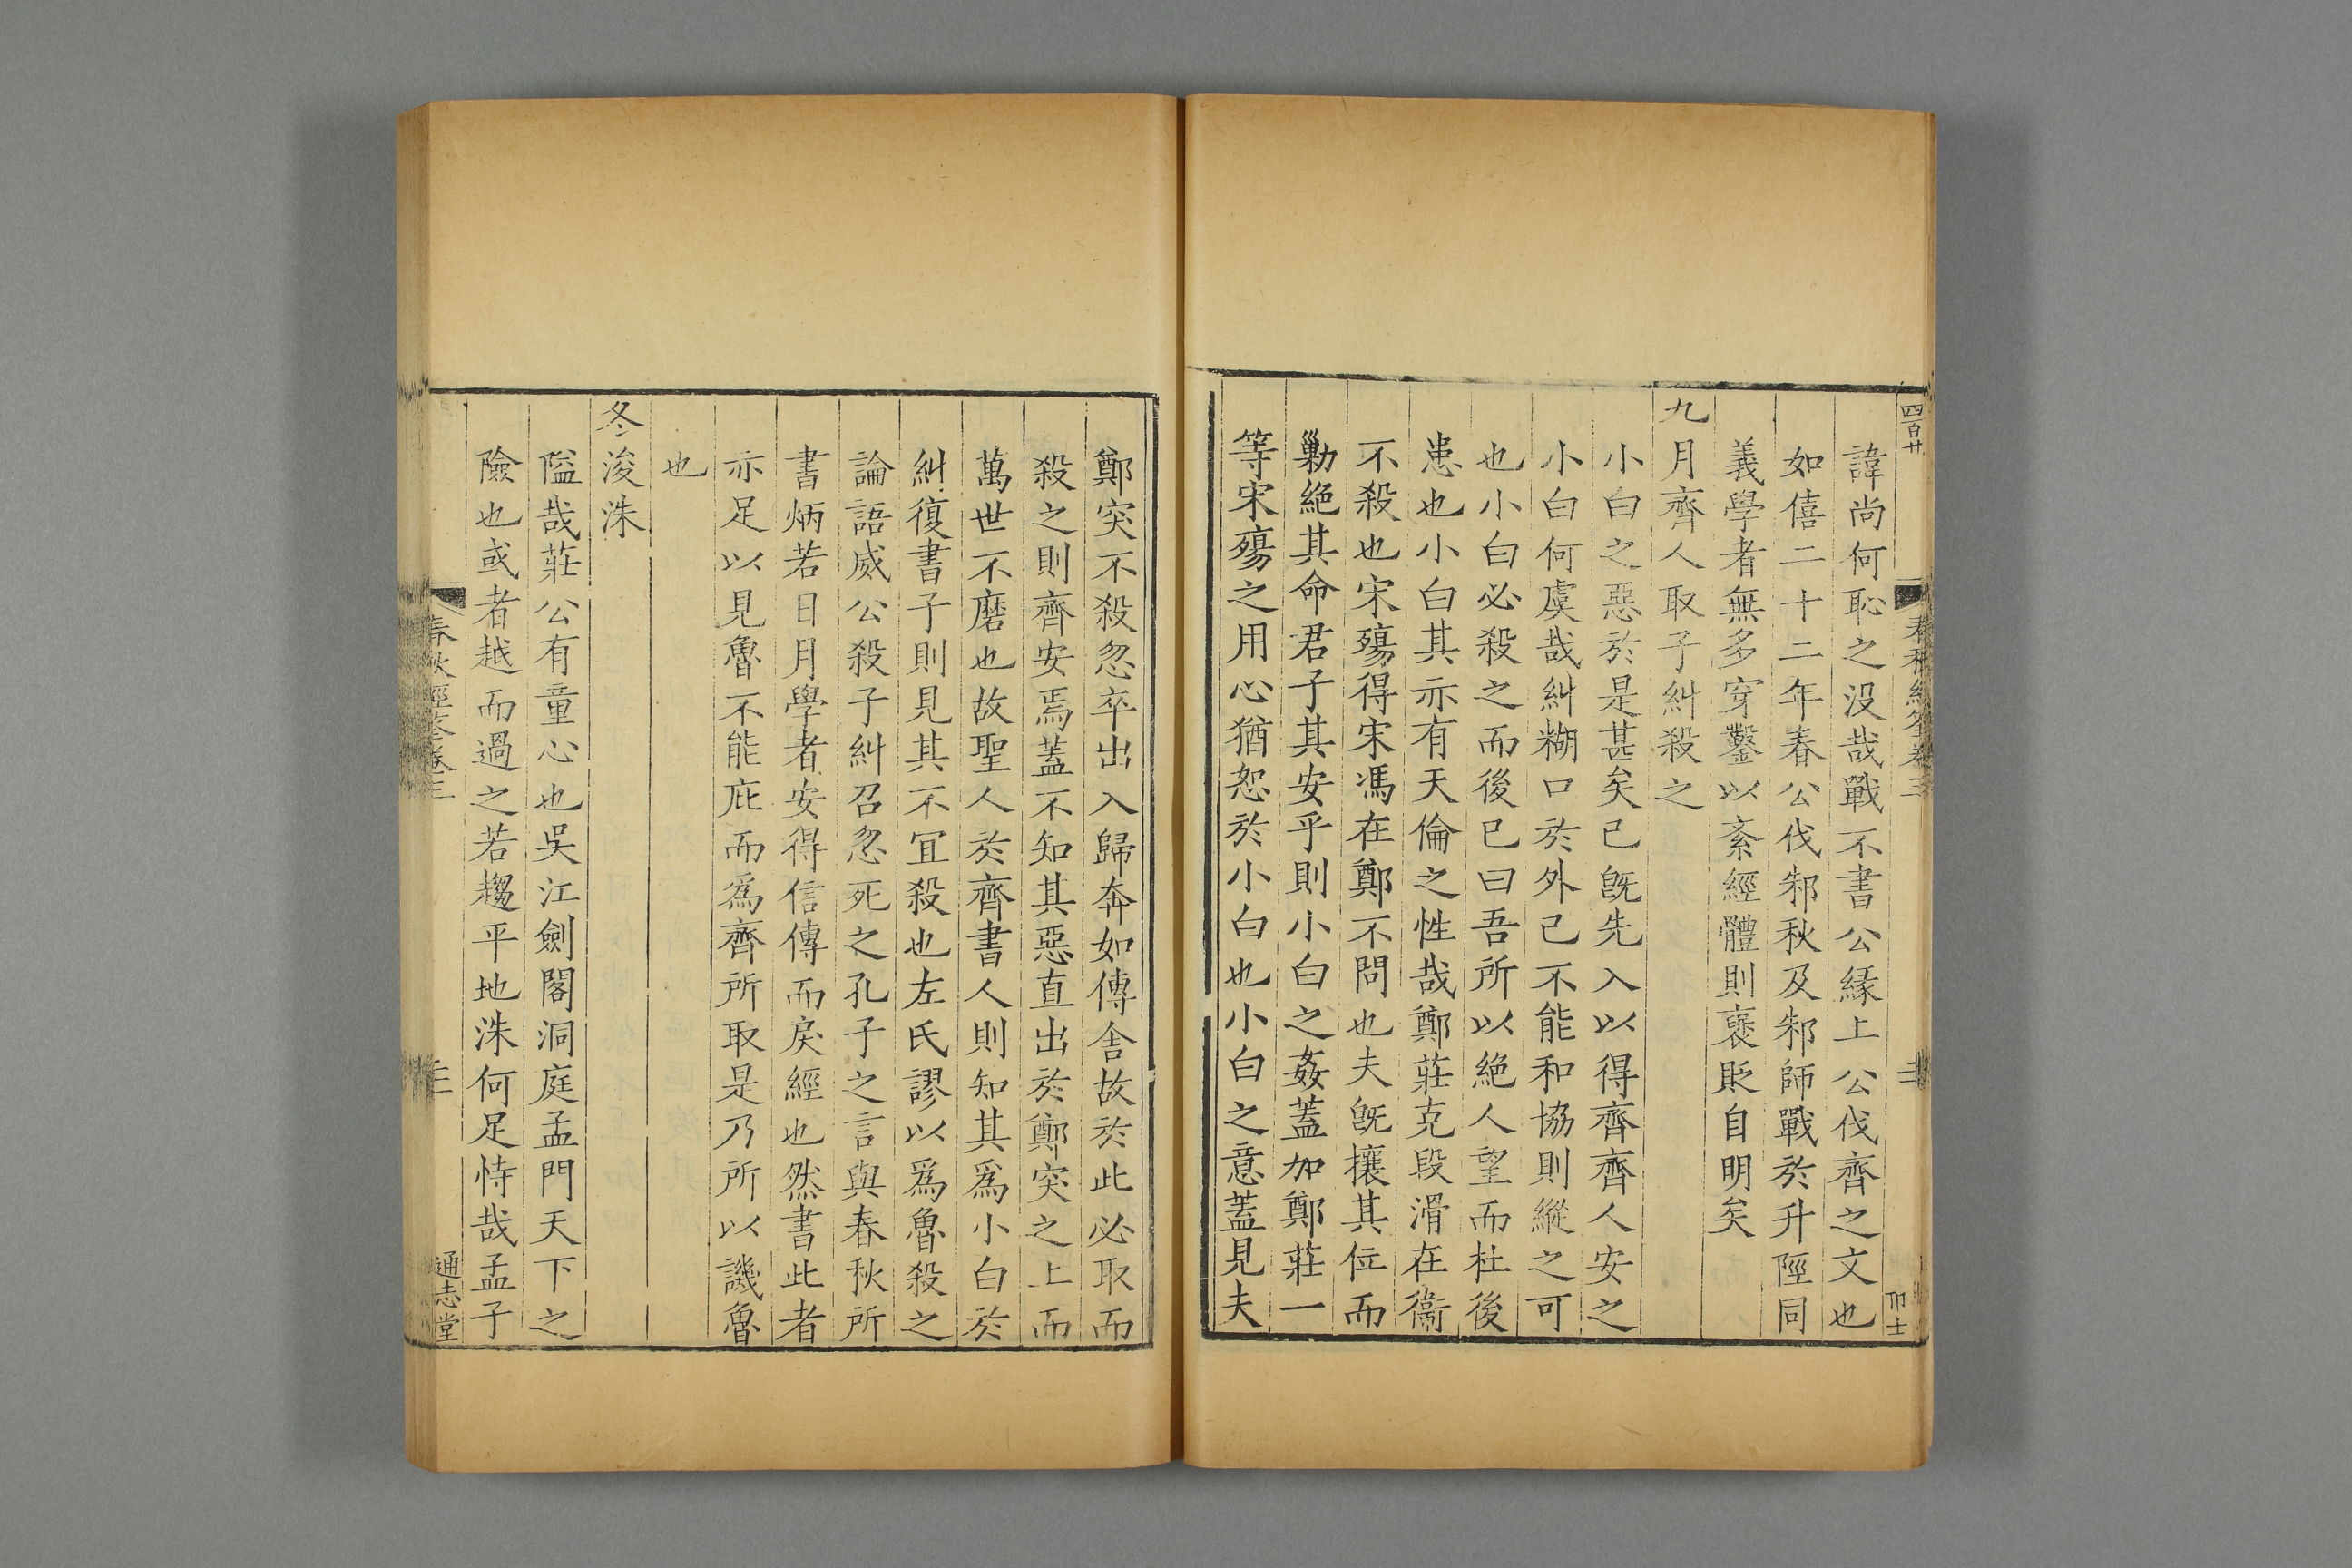 四百廿
春秋經筌卷三
諱尚何恥之没哉戰不書公縁上公伐齊之文也
如僖二十二年春公伐邾秋及邾師戰於升陘同
義學者無多穿鑿以紊經體則褒貶自明矣
九月齊人取子糾殺之
小白之惡於是甚矣己旣先入以得齊齊人安之
小白何虞哉糾糊口於外己不能和協則縱之可
也小白必殺之而後已曰吾所以絶人望而杜後
患也小白其亦有天倫之性哉鄭莊克段滑在衞
不殺也宋殤得宋馮在鄭不問也夫旣攘其位而
勦絶其命君子其安乎則小白之姦蓋加鄭莊一
等宋殤之用心猶恕於小白也小白之意蓋見夫
鄭突不殺忽卒出入歸奔如傳舍故於此必取而
殺之則齊安焉蓋不知其惡直出於鄭突之上而
萬世不磨也故聖人於齊書人則知其爲小白於
糾復書子則見其不宜殺也左氏謬以爲魯殺之
論語威公殺子糾召忽死之孔子之言與春秋所
書炳若日月學者安得信傳而戾經也然書此者
亦足以見魯不能庇而爲齊所取是乃所以譏魯
也
冬浚洙
隘哉莊公有童心也吳江劍閣洞庭孟門天下之
險也或者越而過之若趨平地洙何足恃哉孟子
春秋經筌卷三
通志堂